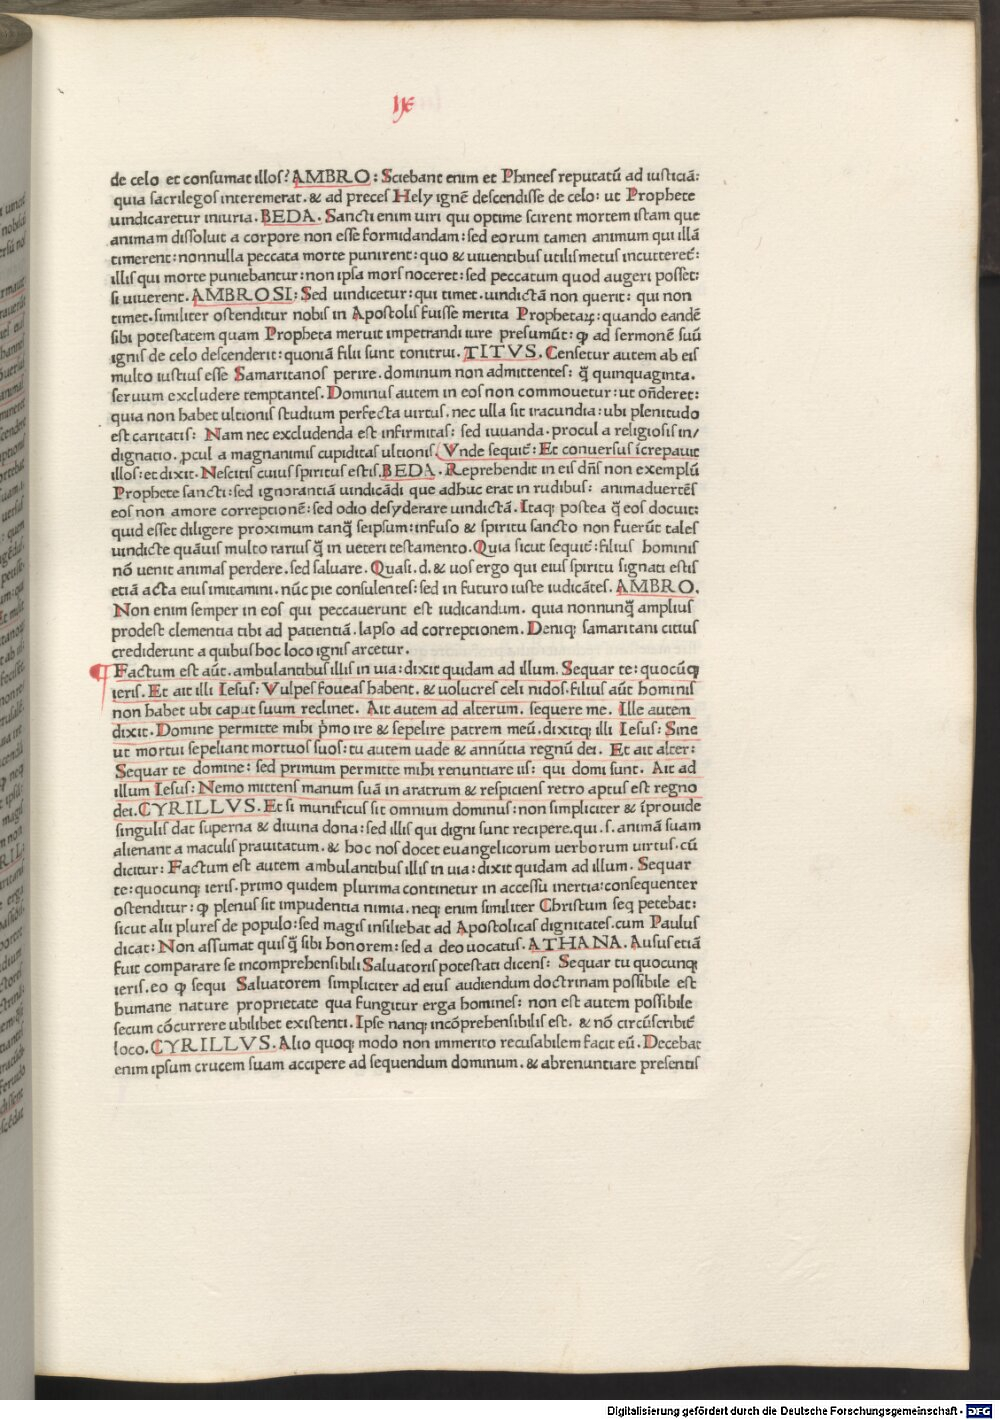 ix
de celo et consumat illos? AMBRO: Sciebant enim et Phinees reputatū ad iusticiā:
quia sacrilegos interemerat. & ad preces Hely ignē descendisse de celo: ut Prophete
uindicaretur iniuria. BEDA. Sancti enim uiri qui optime scirent mortem istam que
animam dissoluit a corpore non esse formidandam: sed eorum tamen animum qui illā
timerent: nonnulla peccata morte punirent: quo & uiuentibus utilis metus incutteret̄:
illis qui morte puniebantur: non ipsa mors noceret: sed peccatum quod augeri posset:
si uiuerent. AMBROSI: Sed uindicetur: qui timet. uindictā non querit: qui non
timet. similiter ostenditur nobis in Apostolis fuisse merita Prophetaꝝ: quando eandē
sibi potestatem quam Propheta meruit impetrandi iure presumūt: ꝙ ad sermonē suū
ignis de celo descenderit: quoniā filii sunt tonitrui. TITVS. Censetur autem ab eis
multo iustius esse Samaritanos perire. dominum non admittentes: q̄ quinquaginta.
seruum excludere temptantes. Dominus autem in eos non commouetur: ut oñderet:
quia non habet ultionis studium perfecta uirtus. nec ulla sit iracundia: ubi plenitudo
est caritatis: Nam nec excludenda est infirmitas: sed iuuanda. procul a religiosis in/
dignatio. ꝓcul a magnanimis cupiditas ultionis. Vnde sequit̄: Et conuersus īcrepauit
illos: et dixit. Nescitis cuius spiritus estis. BEDA. Reprehendit in eis dñs non exemplū
Prophete sancti: sed ignorantiā uindicādi que adhuc erat in rudibus: animaduertēs
eos non amore correptionē: sed odio desyderare uindictā. Itaq; postea q̄ eos docuit:
quid esset diligere proximum tanq̄ seipsum: infuso & spiritu sancto non fuerūt tales
uindicte quāuis multo rarius q̄ in ueteri testamento. Quia sicut sequit̄: filius hominis
nō uenit animas perdere. sed saluare. Quasi. d. & uos ergo qui eius spiritu signati estis
etiā acta eius imitamini. nūc pie consulentes: sed in futuro iuste iudicātes. AMBRO.
Non enim semper in eos qui peccauerunt est iudicandum. quia nonnunq̄ amplius
prodest clementia tibi ad patientiā. lapso ad correptionem. Deniq; samaritani citius
crediderunt a quibus hoc loco ignis arcetur.
¶ Factum est aūt. ambulantibus illis in uia: dixit quidam ad illum. Sequar te: quocūq;
ieris. Et ait illi Iesus: Vulpes foueas habent. & uolucres celi nidos. filius aūt hominis
non habet ubi caput suum reclinet. Ait autem ad alterum. sequere me. Ille autem
dixit. Domine permitte mihi p̄mo ire & sepelire patrem meū. dixitq; illi Iesus: Sine
ut mortui sepeliant mortuos suos: tu autem uade & annūtia regnū dei. Et ait alter:
Sequar te domine: sed primum permitte mihi renuntiare iis: qui domi sunt. Ait ad
illum Iesus: Nemo mittens manum suā in aratrum & respiciens retro aptus est regno
dei. CYRILLVS. Et si munificus sit omnium dominus: non simpliciter & īprouide
singulis dat superna & diuina dona: sed illis qui digni sunt recipere. qui. s. animā suam
alienant a maculis prauitatum. & hoc nos docet euangelicorum uerborum uirtus. cū
dicitur: Factum est autem ambulantibus illis in uia: dixit quidam ad illum. Sequar
te: quocunq; ieris. primo quidem plurima continetur in accessu inertia: consequenter
ostenditur: ꝙ plenus sit impudentia nimia. neq; enim similiter Christum seq petebat:
sicut alii plures de populo: sed magis insiliebat ad Apostolicas dignitates. cum Paulus
dicat: Non assumat quisq̄ sibi honorem: sed a deo uocatus. ATHANA. Ausus etiā
fuit comparare se incomprehensibili Saluatoris potestati dicens: Sequar tu quocunq;
ieris. eo ꝙ sequi Saluatorem simpliciter ad eius audiendum doctrinam possibile est
humane nature proprietate qua fungitur erga homines: non est autem possibile
secum cōcurrere ubilibet existenti. Ipse nanq; incōprehensibilis est. & nō circūscribit̄
loco. CYRILLVS. Alio quoq; modo non immerito recusabilem facit eū. Decebat
enim ipsum crucem suam accipere ad sequendum dominum. & abrenuntiare presentis
Digitalisierung gefördert durch die Deutsche Forschungsgemeinschaft - DFG